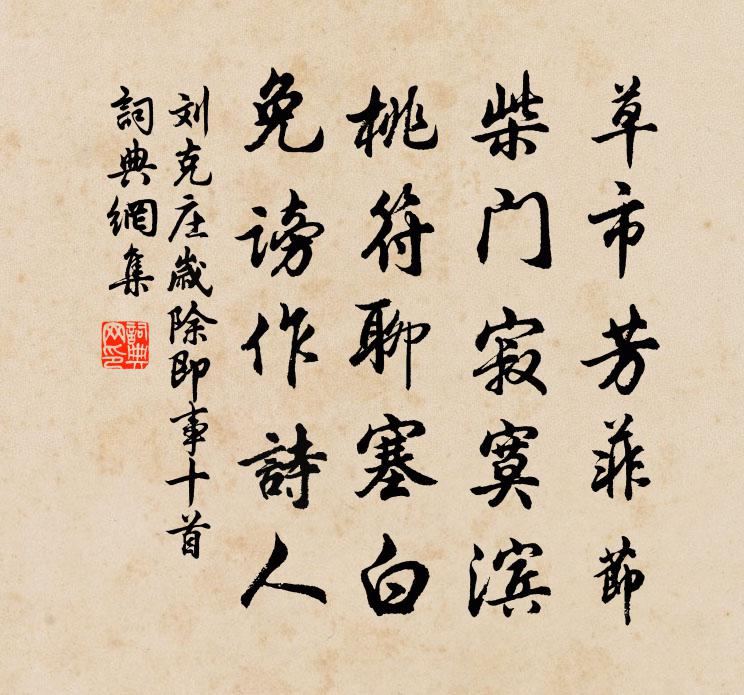 草市芳菲節
柴门寂寞滨
桃符聊塞白
免谤作詩人
刘克庄歳除即事十首
詞典網集
詞典网印